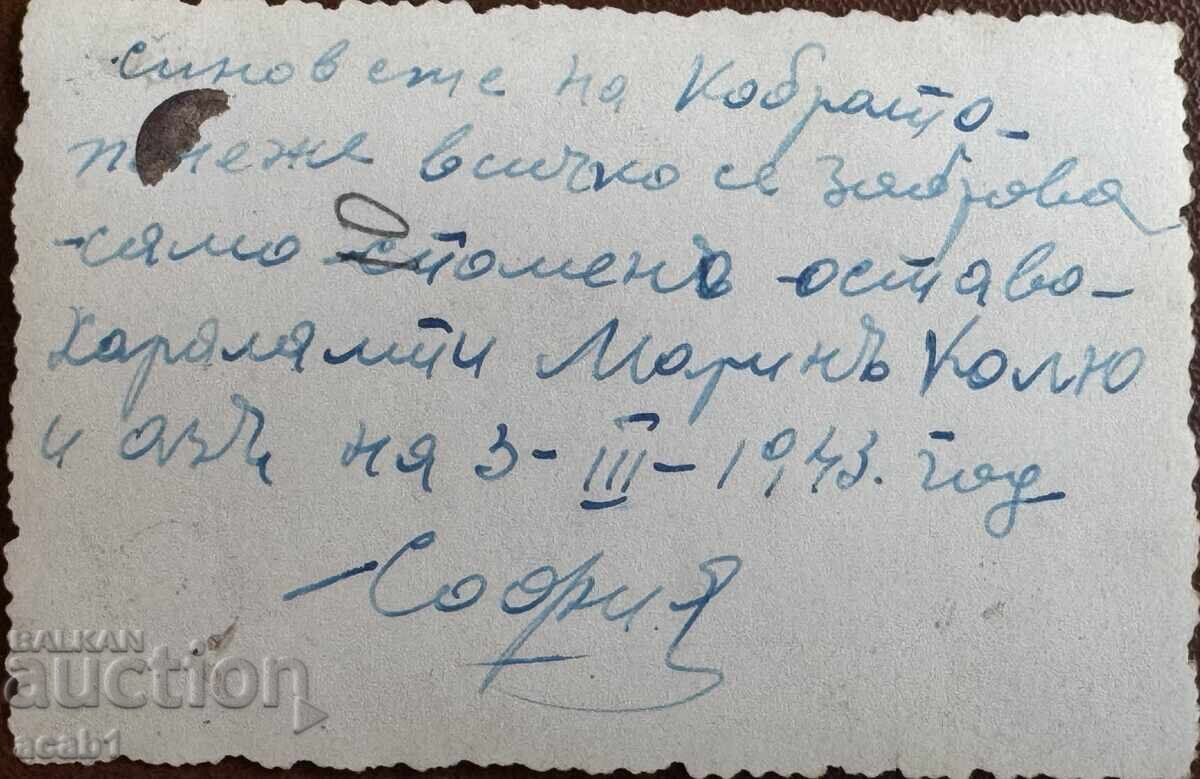 синовете на Кобрата -
понеже всичко се забравя
само споменъ остава -
Харалампи Маринъ Колю
и азъ на 3-III-1943. год
- София
BALKAN
auction
acab1